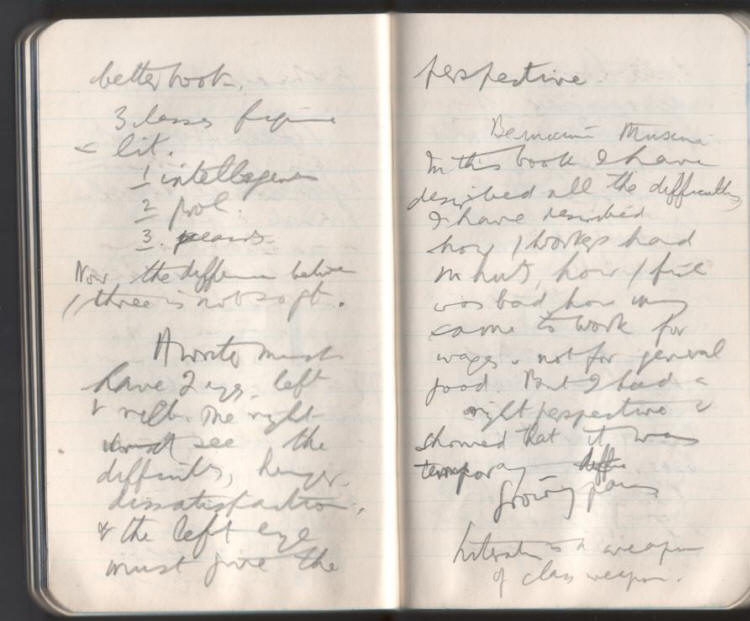 better book.
3 classes figure
lit.
1 intelligensia
2 prol.
3. peasants
Now the difference between
/ three is not so gt.
A writer must
have 2 eyes. left
& right. The right
must see the
difficults, hunger,
dissatisfaction,
& the left eye
must give the
perspective.
In this book I have
described all the difficulties
I have described
how / workers had
in huts, how / fuel
was bad how many
came to work for
wages. not for general
good. But I had a
right perspective &
showed that it was
temporary
growing pains
Literature is a weapon
of class weapon.